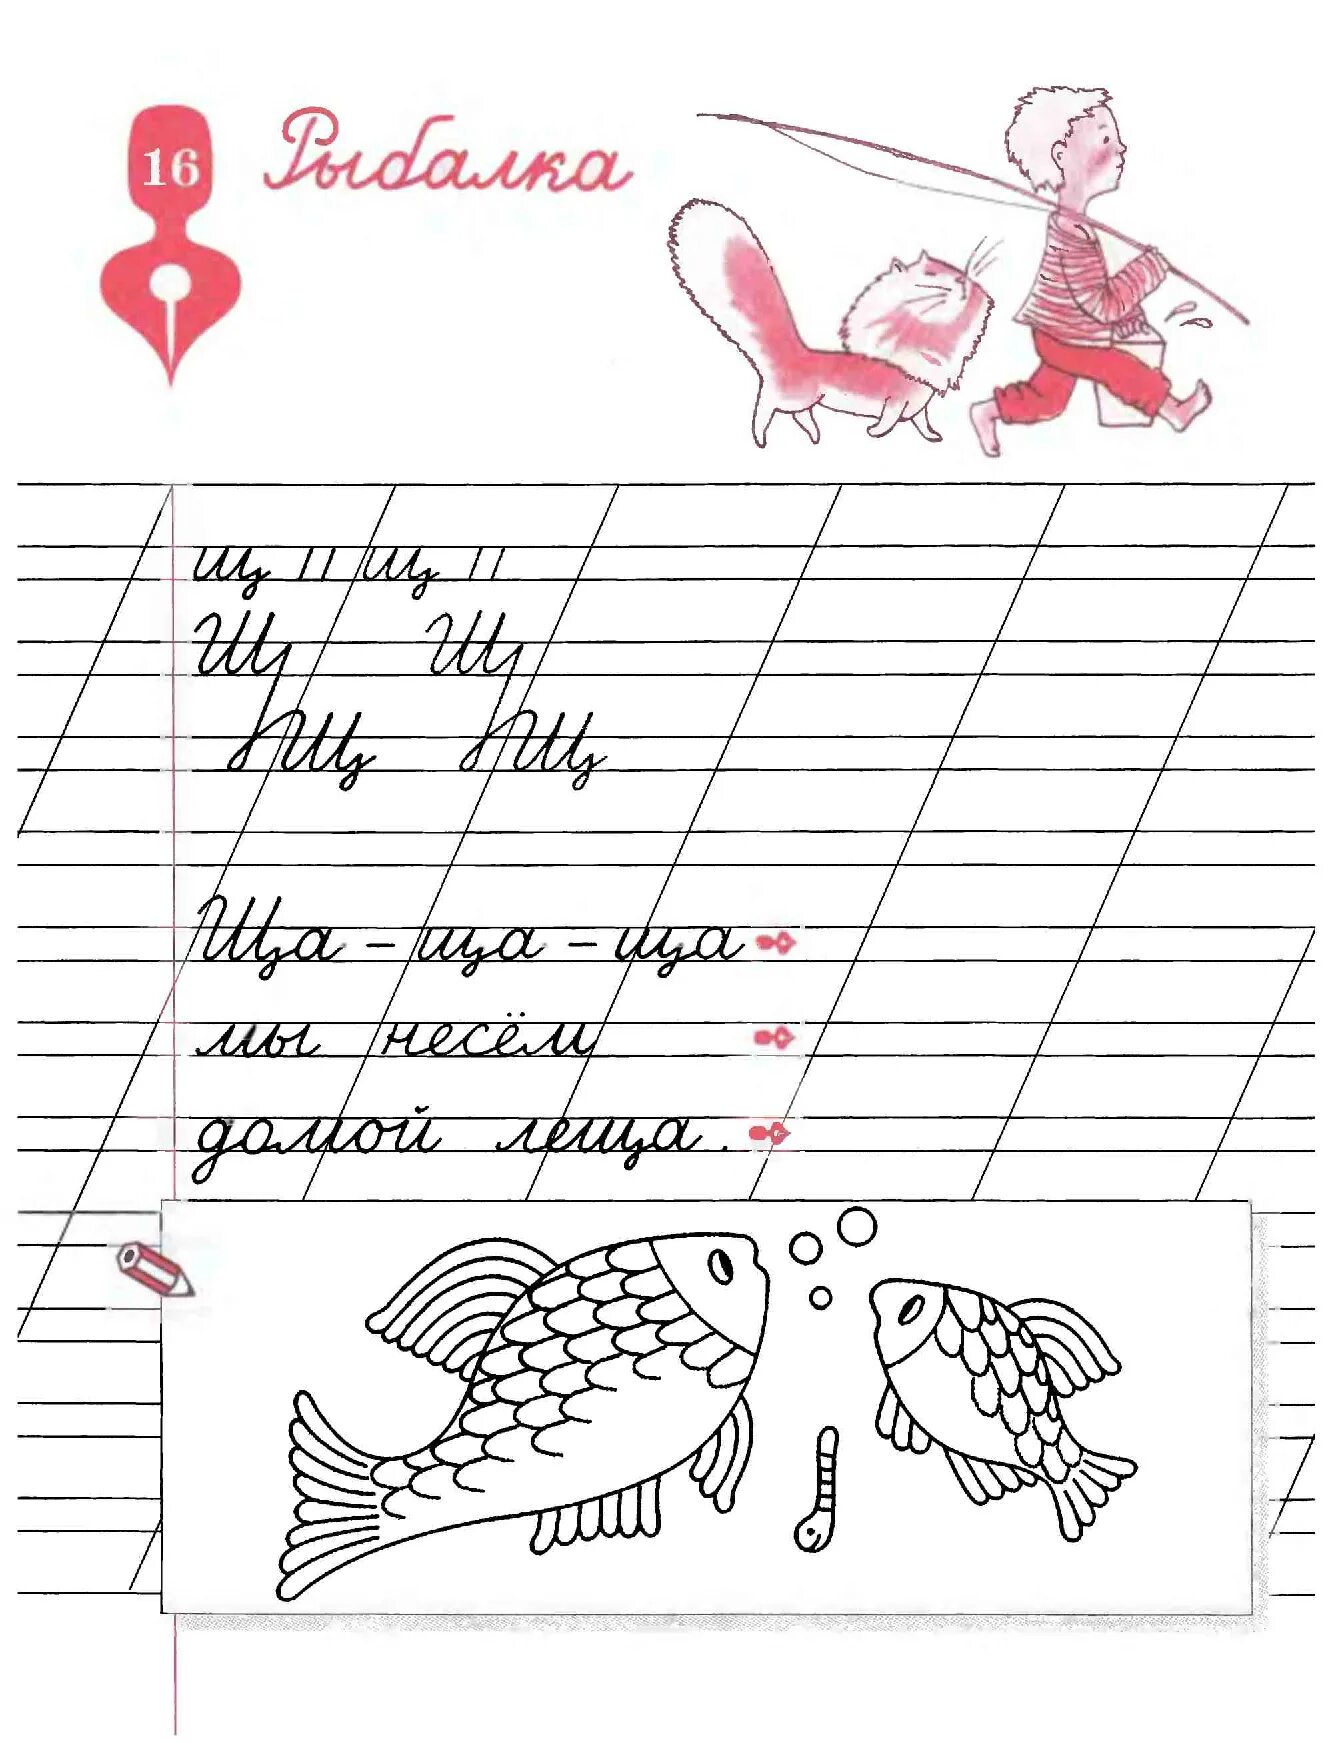 16 Рыбалка
щ ıı щ ıı
Щ Щ
Щ Щ
Ща – ща – ща
мы несём
домой леща.